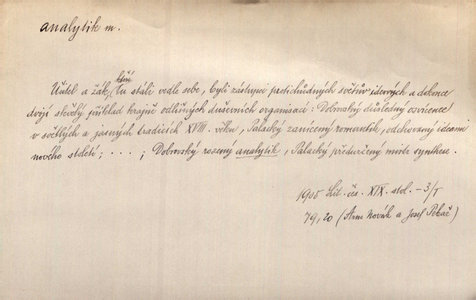 analytik m.
Učitel a žák, kteří tu stáli vedle sebe, byli zástupci protichůdných světů ideových a dokonce
dvojí skvělý příklad krajně odlišných duševních organisací: Dobrovský důsledný osvícenec
v světlých a jasných tradicích XVIII. věku, Palacký zanícený romantik, odchovaný ideami
nového století; . . . . ; Dobrovský rozený analytik, Palacký předurčený mistr synthese.
1905 Lit. čes. XIX. stol. – 3/I
79, 20 (Arne Novák a Josef Pekař)